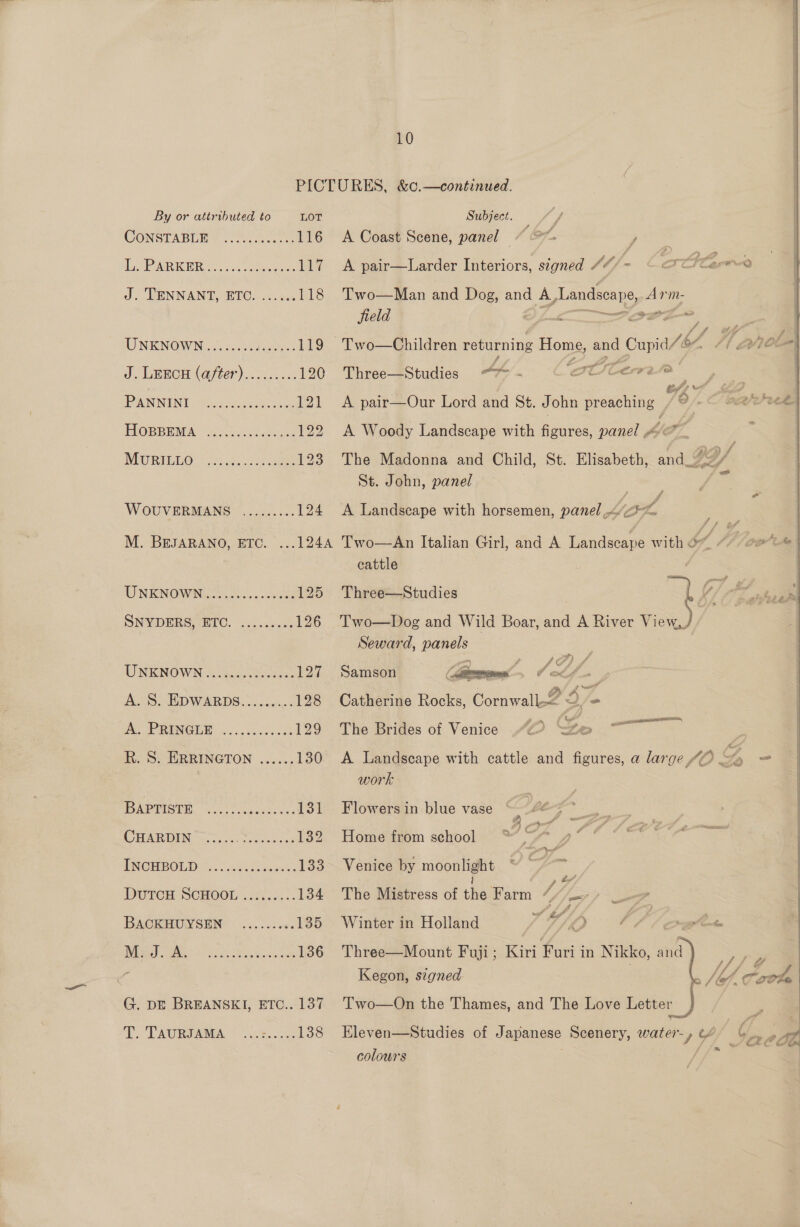 10
PICTURES, &c.—continued.
By or attributed to LOT Subject.
CONSTABLE ............116 A Coast Scene, panel
L. PARKER...............117 A pair—Larder Interiors, signed
J. TENNANT, ETC. ......118 Two—Man and Dog, and A Landscape, Arm-
field
UNKNOWN...............119 Two—Children returning Home, and Cupid
J. LEECH (after).........120 Three—Studies
PANNINI ...............121 A pair—Our Lord and St. John preaching
HOBBEMA ...............122 A Woody Landscape with figures, panel
MURILLO ...............123 The Madonna and Child, St. Elisabeth, and
St. John, panel
WOUVERMANS .........124 A Landscape with horsemen, panel
M. BEJARANO, ETC. ...124A Two—An Italian Girl, and A Landscape with
cattle
UNKNOWN...............125 Three—Studies
SNYDERS, ETC. .........126 Two—Dog and Wild Boar, and A River View,
Seward, panels
UNKNOWN...............127 Samson
A. S. EDWARDS.........128 Catherine Rocks, Cornwall
A. PRINGLE ............129 The Brides of Venice
R. S. ERRINGTON ......130 A Landscape with cattle and figures, a large
work
BAPTISTE ...............131 Flowers in blue vase
CHARDIN ...............132 Home from school
INCHBOLD ...............133 Venice by moonlight
DUTCH SCHOOL .........134 The Mistress of the Farm
BACKHUYSEN .........135 Winter in Holland
M. J. A. ...............136 Three—Mount Fuji; Kiri Furi in Nikko, and
Kegon, signed
G. DE BREANSKI, ETC..137 Two—On the Thames, and The Love Letter
T. TAURJAMA .........138 Eleven—Studies of Japanese Scenery, water-
colours